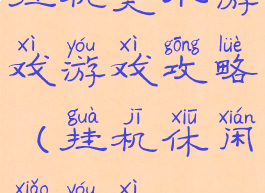 xì yóu xì gōng lüè
戏游戏攻略
guà jī xiū xián
（挂机休闲
xiǎo yóu xì